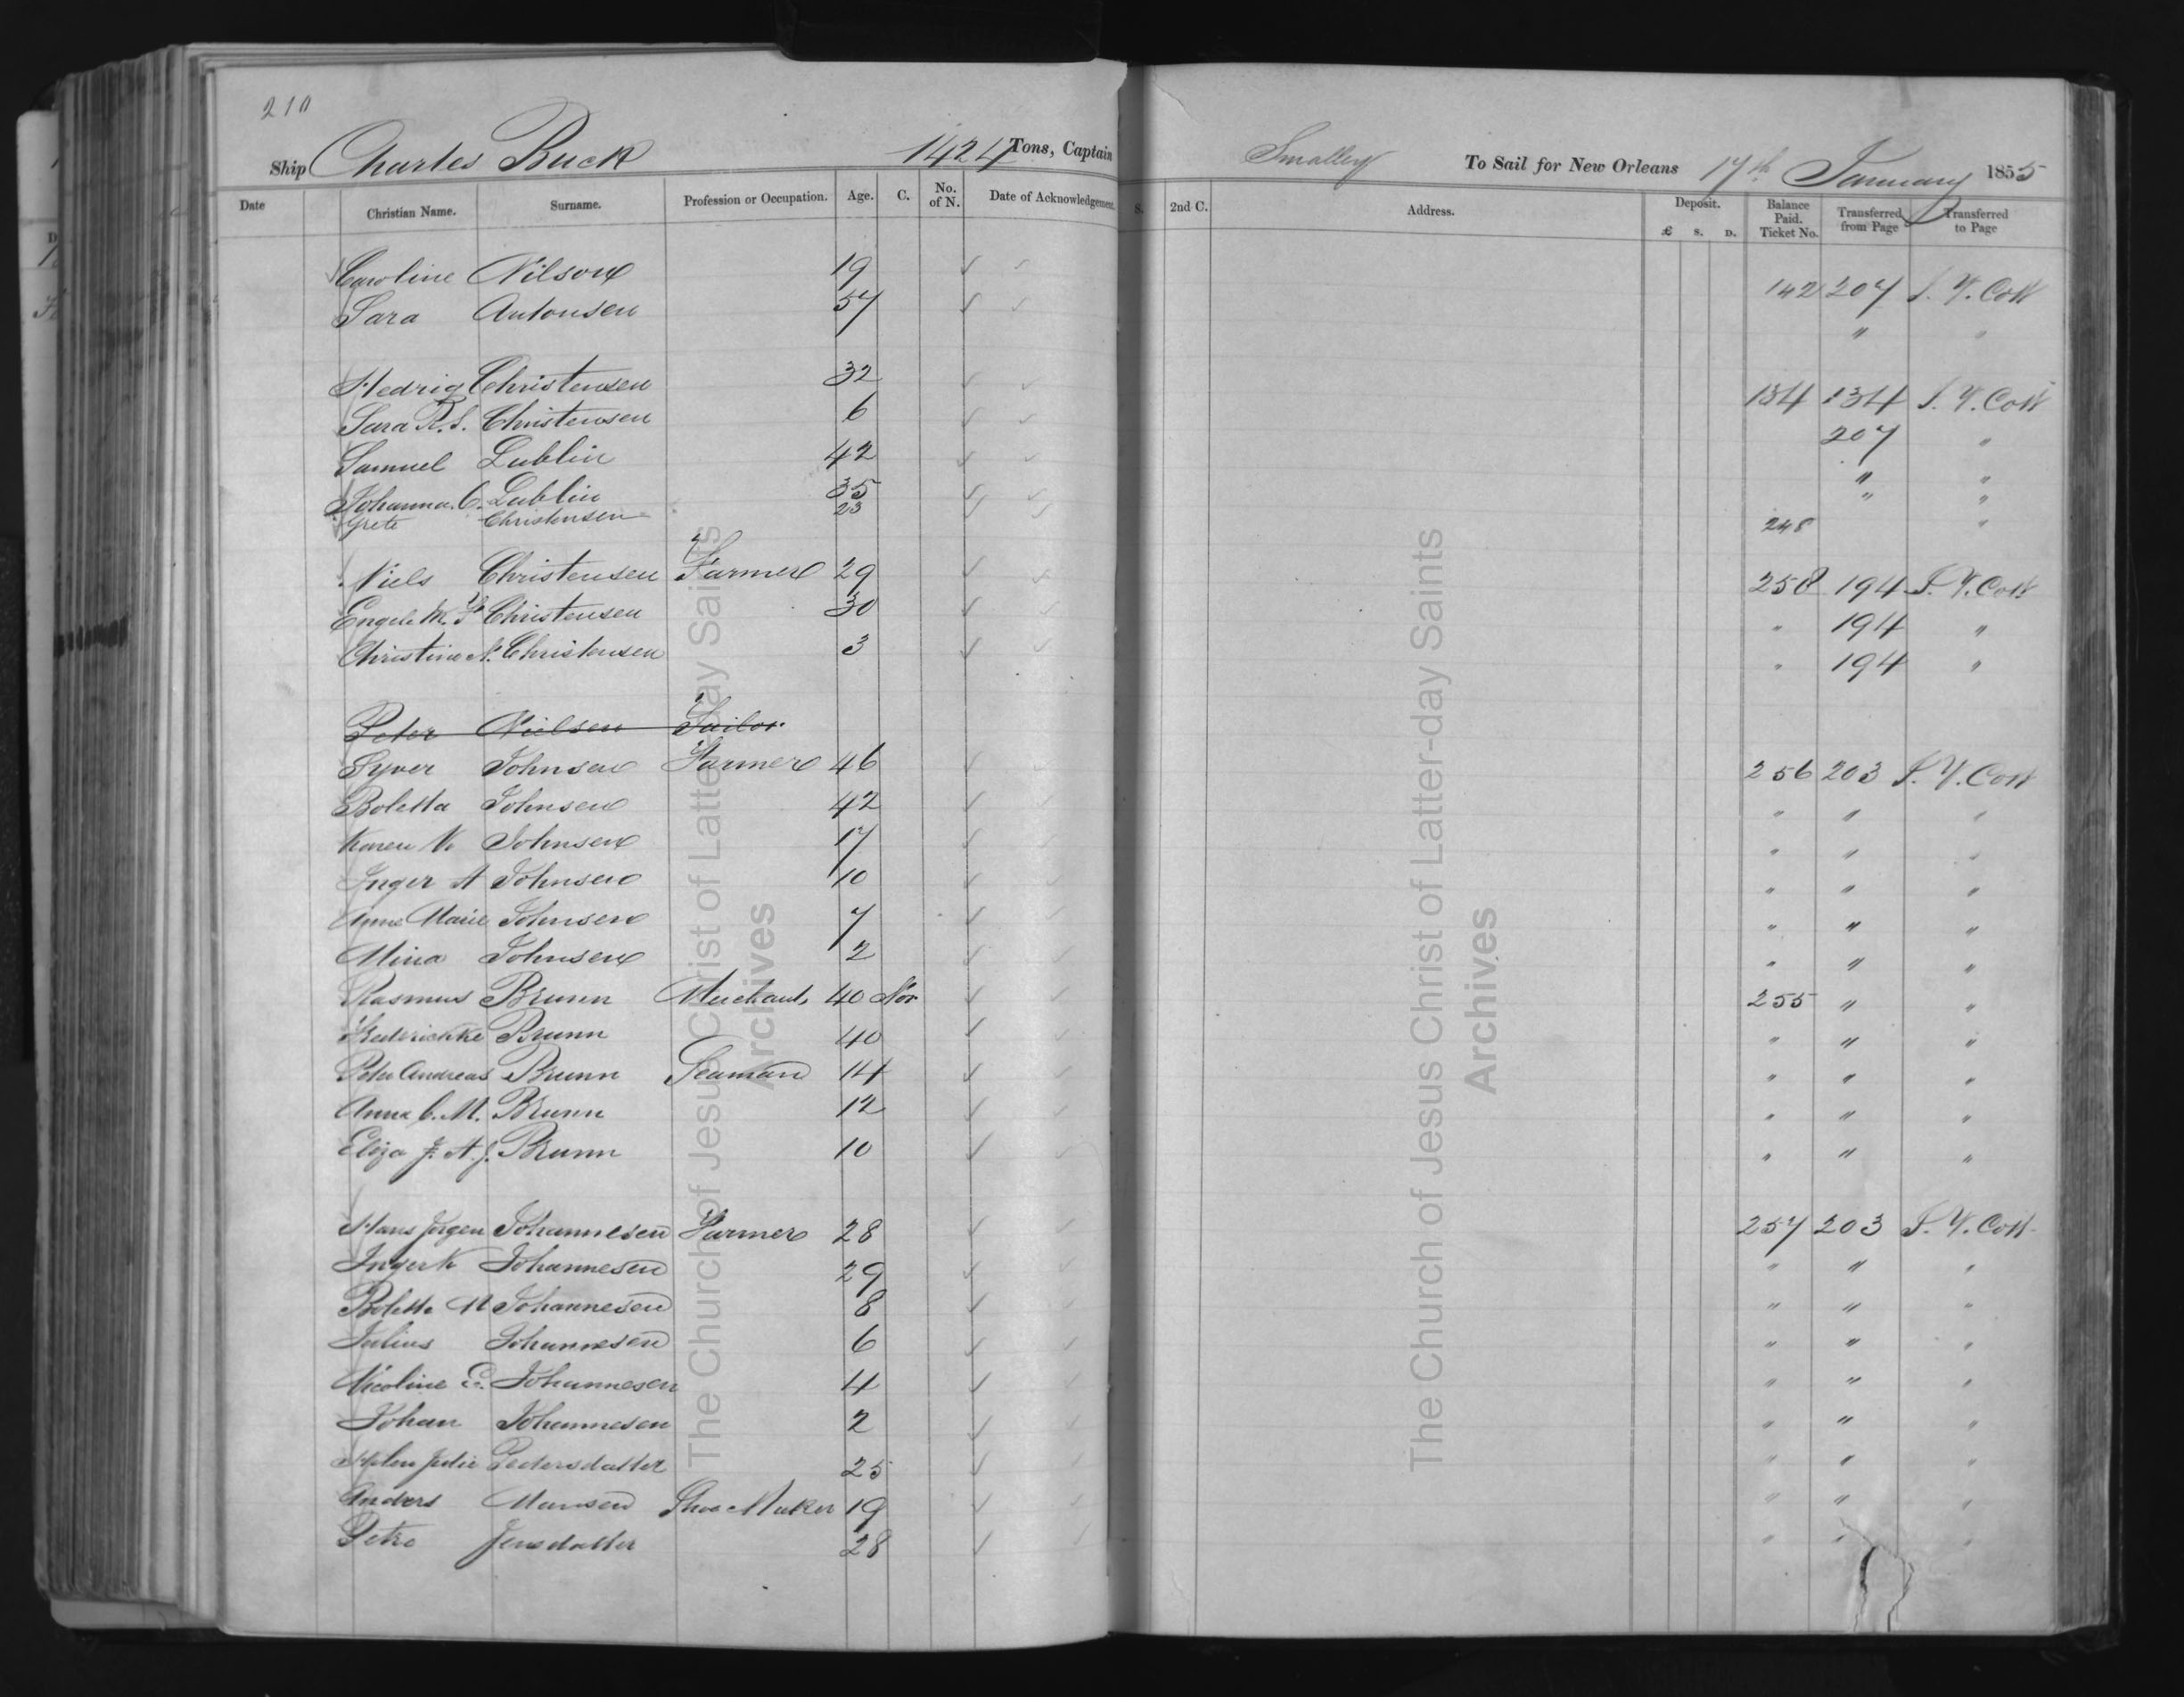 210
Ship Charles Buck 1424 Tons, Captain Smalley To Sail for New Orleans 17th January 1855
Date Christian Name. Surname. Profession or Occupation. Age. C. No. of N. Date of Acknowledgement. S. 2nd C. Address. Deposit. £ S. D. Balance Paid. Ticket No. Transferred from Page Transferred to Page
Caroline Nilson 19 142 207 P. Y. Co
Sara Antonsen 57 " "
Hedrig Christensen 32 134 134 P. Y. Co
Sara R. S. Christensen 6 207 "
Samuel Lublin 42 " "
Johanna C. Lublin 35 " "
Grete Christensen 23 248 "
Niels Christensen Farmer 29 258 194 P. Y. Co
Engele M. Christensen 30 " 194 "
Christine N. Christensen 3 " 194 "
Peter Nielsen Sailor
Syver Johnsen Farmer 46 256 203 P. Y. Co
Boletta Johnsen 42 " " "
Karen Johnsen 17 " " "
Inger A Johnsen 10 " " "
Anne Marie Johnsen 7 " " "
Mina Johnsen 2 " " "
Rasmus Brunn Merchant 40 Nor 255 " "
Frederickke Brunn 40 " " "
Peter Andreas Brunn Seaman 14 " " "
Anna C. M. Brunn 12 " " "
Eliza J. A. J. Brunn 10 " " "
Hans Jorgen Johannesen Farmer 28 257 203 P. Y. Co
Inger K Johannesen 29 " " "
Bolette M Johannesen 8 " " "
Julius Johannesen 6 " " "
Nicoline E. Johannesen 4 " " "
Johan Johannesen 2 " " "
Helen Julie Pedersdatter 25 " " "
Anders Hansen Shoe Maker 19 " " "
Petre Jensdatter 28 " " "
The Church of Jesus Christ of Latter-day Saints
Archives
The Church of Jesus Christ of Latter-day Saints
Archives